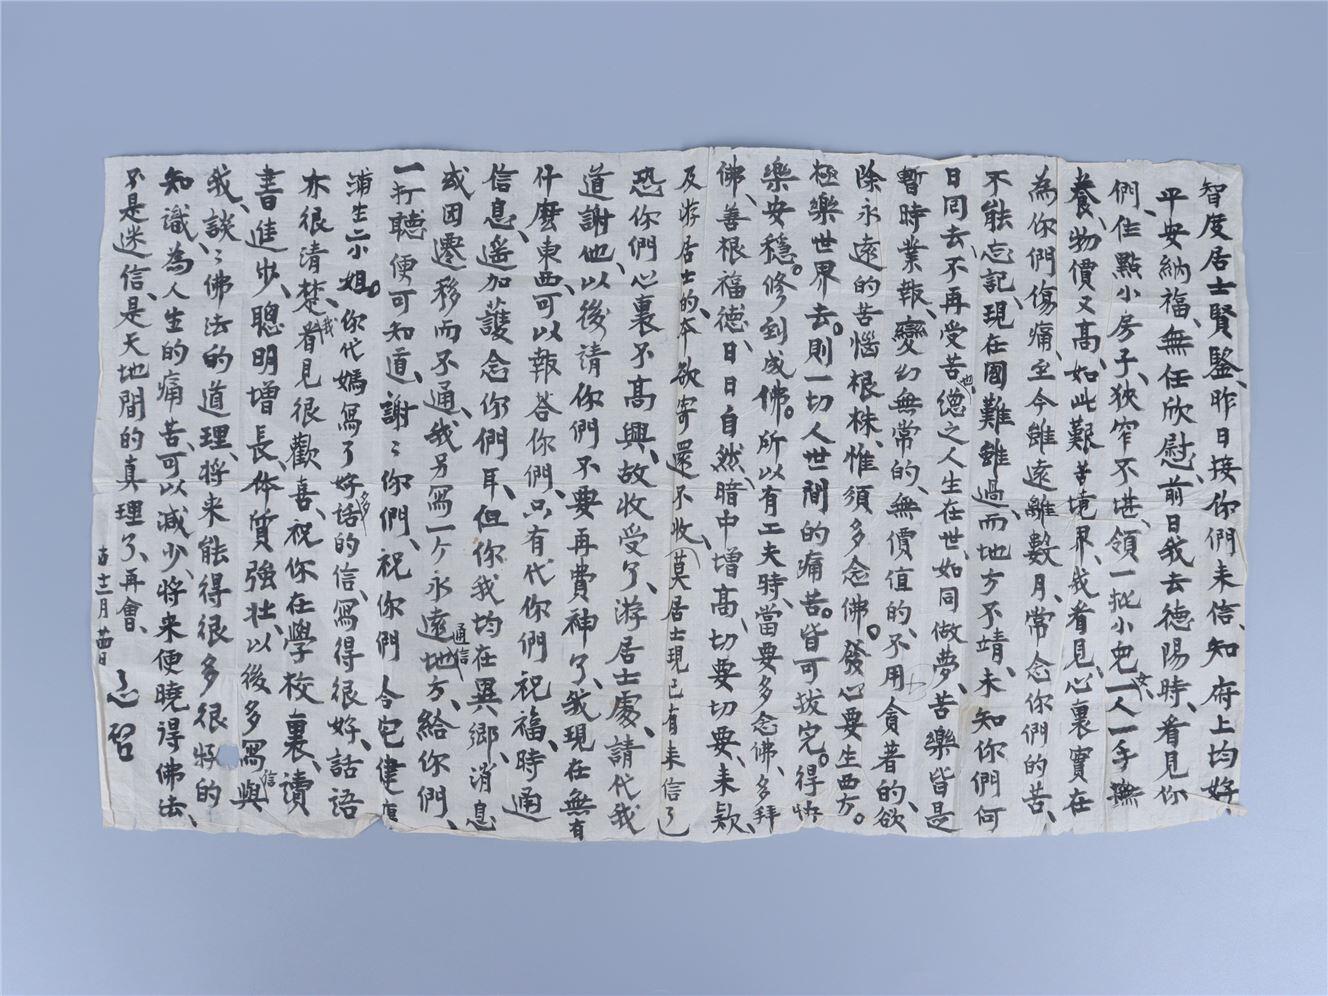 智度居士賢鑒、昨日接你們来信、知 府上均好、
平安納福、無任欣慰、前日我去德陽時、看見你
們、住點小房子、狹窄不堪、領一批小兒女、一人一手撫
養、物價又高、如此艱苦境界、我看見、心裏實在
為你們傷痛、至今雖遠離數月、常念你們的苦、
不能忘記、現在國難雖過、而地方不靖、未知你們何
日回去、不再受苦也、總之人生在世、如同做夢、苦樂皆是
暫時業報、變幻無常的、無價值的、不用貪著的、欲
除永遠的苦惱根株、惟須多念佛。發心要生西方。
極樂世界、去。則一切人世間的痛苦。皆可拔完。得快
樂安穩。修到成佛。所以有工夫時、當要多念佛、多拜
佛、善根福德、日日自然、暗中增高、切要切要、来款、
及游居士的、本欲寄還不收、莫居士現已有来信了
恐你們心裏不高興、故收受了、游居士處、請代我
道謝他、以後請你們不要再費神了、我現在無有
什麼東西、可以報答你們、只有代你們祝福、時通
信息、遥加護念你們耳、但你我均在異鄉、消息
或因遷移而不通、我另寫一个永遠通信地方、給你們、
一打聽便可知道、謝々你們、祝你們 合宅健康
浦生二小姐。你代媽寫了好多話的信、寫得很好、話語
亦很清楚、我看見很歡喜、祝你在學校裏、讀
書進步、聰明增長、体質強壯、以後多寫信與
我、談々佛法的道理、將来能得很多很好的
知識、為人生的痛苦、可以减少、將来便曉得佛法、
不是迷信、是天地間的真理了、再會、
古十二月廿四日